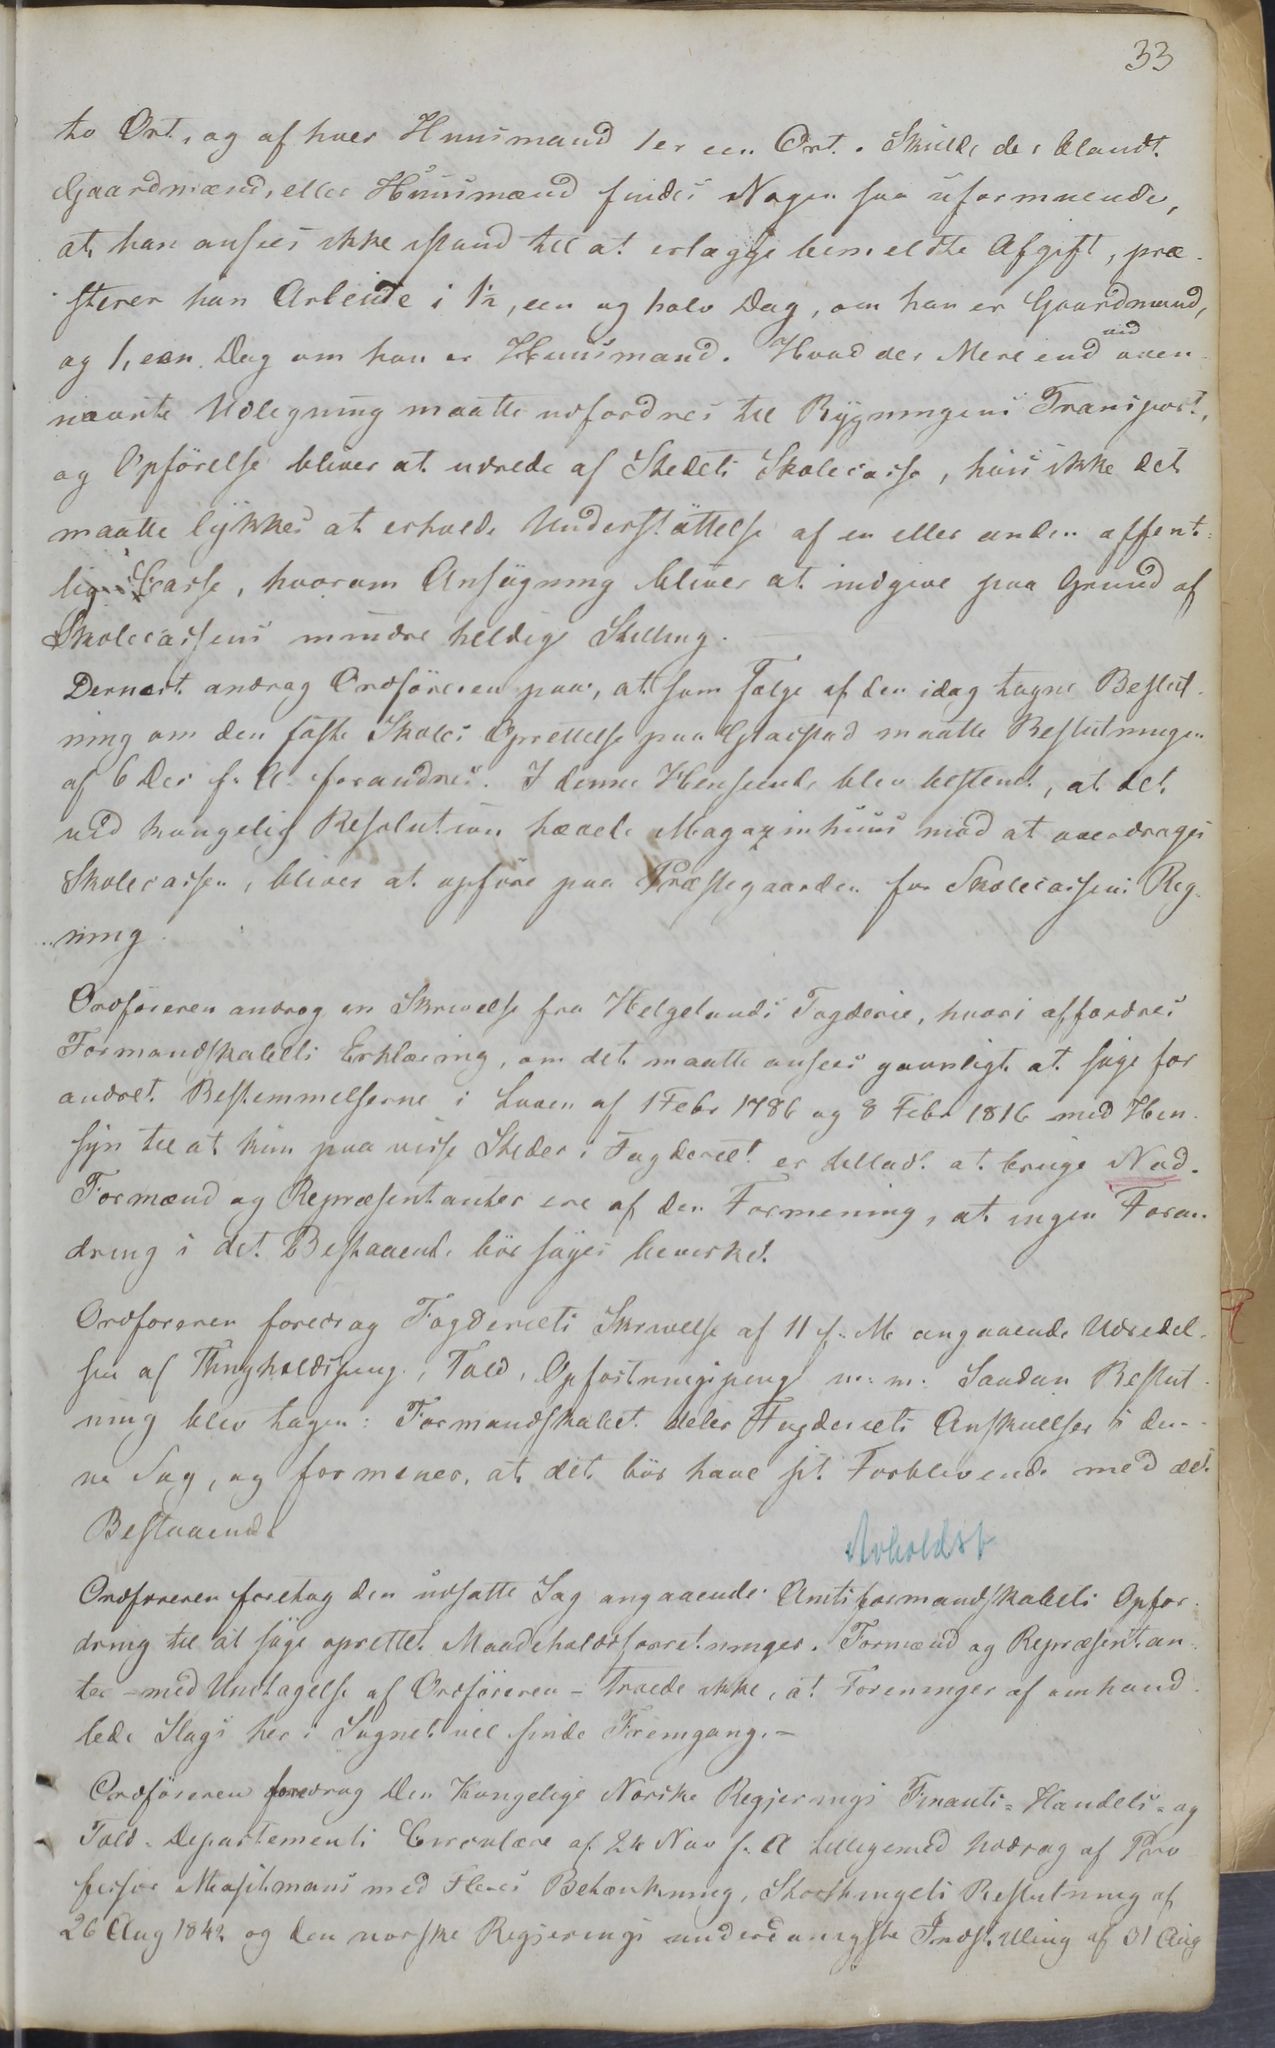 33
to Ort, og af hver Huusmand 1 er een Ort. Skulde der blandt
Gaardmænd eller Huusmænd findes Nogen saa uformuende,
at han ansees ikke istand til at erlægge bemeldte Afgift, præ-
sterer han Arbeide i 1½, een og halv Dag, om han er Gaardmand,
og 1, een Dag om han er Huusmand. Hvad der Mere end ved oven-
nævnte Udlegning maatte udfordres til Bygningens Transport,
og Opførelse bliver at udrede af Stedets Skolecasse, hvis ikke det
maatte lykkes at erholde Understøttelse af en eller anden offent-
lig Casse, hvorom Ansøgning bliver at indgive paa Grund af
Skolecassens mindre heldige Stilling.
Dernæst androg Ordføreren paa, at som Følge af den idag tagne Beslut-
ning om den faste Skoles Oprettelse paa maatte Beslutningen
af 6 Dec f. A. forandres. I denne Henseende blev bestemt, at det
ved kongelig Resolution hævede Magazinhuus mod at overdrages
Skolecassen, bliver at opføre paa Præstegaarden for Skolecassens Reg-
ning.
Ordføreren androg en Skrivelse fra Helgelands Fogderie, hvori affordres
Formandskabets Erklæring, om det maatte ansees gavnligt at søge for
andret Bestemmelserne i Loven af 1 Febr 1786 og 8 Febr 1816 med Hen-
syn til at kun paa visse Steder i Fogderiet er tilladt at bruge Nod.
Formænd og Repræsentanter ere af den Formening, at ingen Foran-
dring i det Bestaaende bör søges bevirket.
Ordføreren foredrog Fogderiets Skrivelse af 11 f. M. angaaende Udredel-
sen af Thingholdspenge, Told, Opfostringspenge m: m: Saadan Beslut-
ning blev tagen: Formandskabet deler Fogderiets Anskuelser i den-
ne Sag, og formener, at det bör have sit Forblivende med det
Bestaaende
Avholdst
Ordføreren foretog den udsatte Sag angaaende Amtsformandskabets Opfor-
dring til at søge oprettet Maadeholdsforetninger. Formænd og Repræsentan-
ter - med Undtagelse af Ordføreren - troede ikke, at Foreninger af omhand-
lede Slags her i Sognet vil finde Fremgang. -
Ordføreren foredrog Den Kongelige Norske Regjerings Finants- Handels- og
Told- Departements Circulære af 24 Nov f. A tilligemed Uddrag af Pro-
fessor med Fleres Betænkning, Storthingets Beslutning af
26 Aug 1842 og den norske Regjerings underdanigste Indstilling af 31 Aug